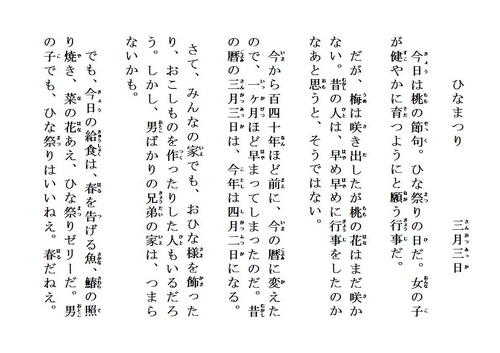 ひなまつり　三月三日
今日は桃の節句。ひな祭りの日だ。女の子
が健やかに育つようにと願う行事だ。
だが、梅は咲き出したが桃の花はまだ咲か
ない。昔の人は、早め早めに行事をしたのか
なあと思うと、そうではない。
今から百四十年ほど前に、今の暦に変えた
ので、一ヶ月ほど早まってしまったのだ。昔
の暦の三月三日は、今年は四月二日になる。
さて、みんなの家でも、おひな様を飾った
り、おこしものを作ったりした人もいるだろ
う。しかし、男ばかりの兄弟の家は、つまら
ないかも。
でも、今日の給食は、春を告げる魚、鰆の照
り焼き、菜の花あえ、ひな祭りゼリーだ。男
の子でも、ひな祭りはいいねえ。春だねえ。